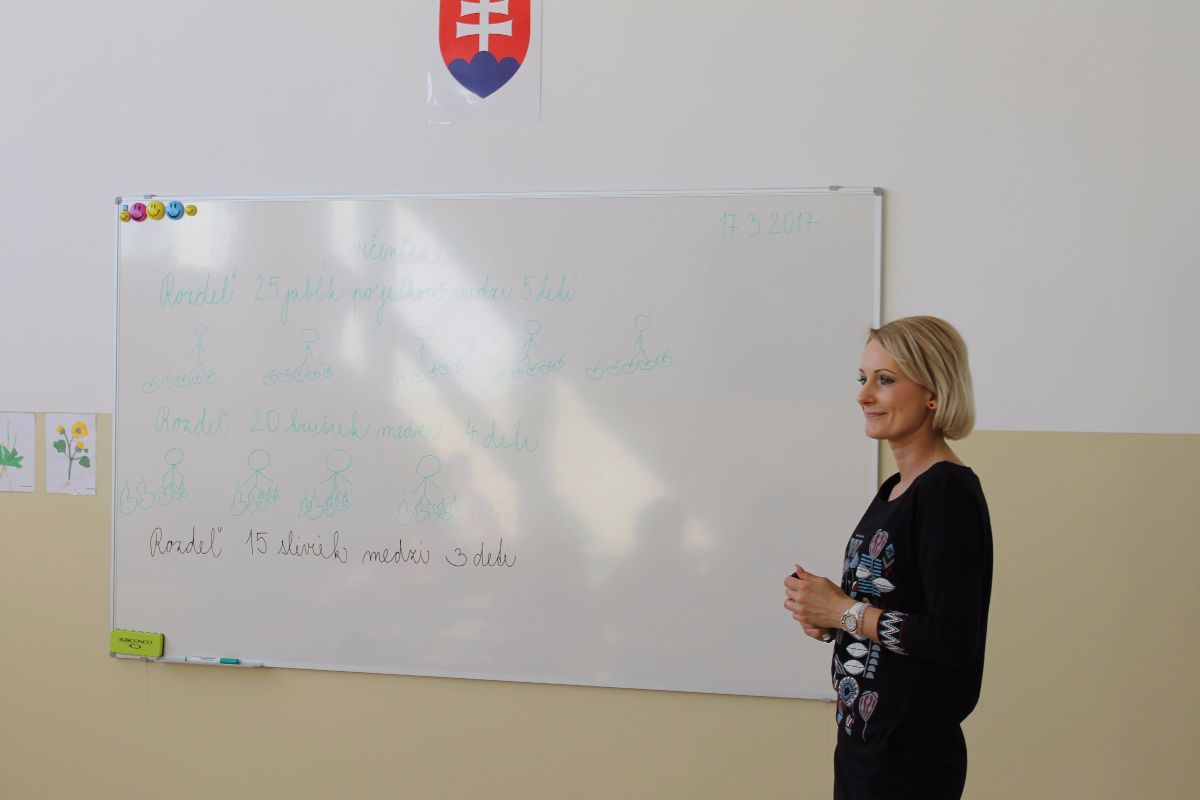 17.3.2017
Cvičenie
Rozdeľ 25 jabĺk po jednom medzi 5 detí
Rozdeľ 20 hrušiek medzi 4 deti
Rozdeľ 15 slivák medzi 3 deti
CONCORDE